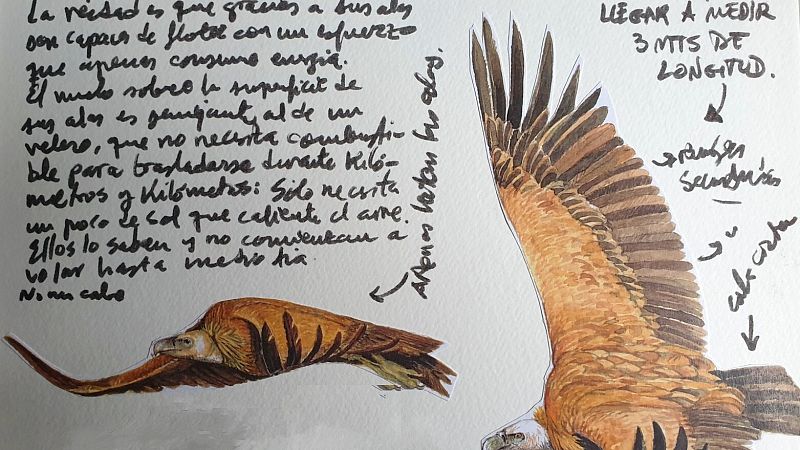 La verdad es que gracias a sus alas
son capaces de flotar con un esfuerzo
que apenas consume energía.
El mundo sobre la superficie de
sus alas es semejante al de un
velero, que no necesita combusti-
ble para trasladarse durante Kiló-
metros y Kilómetros: Sólo necesita
un poco de sol que caliente el aire.
Ellos lo saben y no comienzan a
volar hasta medio día.
Apenas baten las alas.
LLEGAR A MEDIR
3 MTS DE
LONGITUD.
secundarias
cola corta